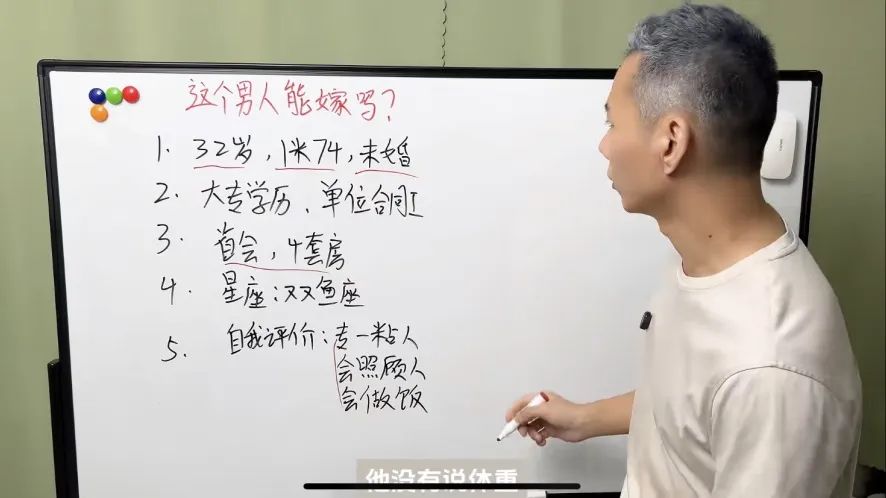 这个男人能嫁吗?
1. 32岁,1米74,未婚
2. 大专学历、单位合同工
3. 省会,4套房
4. 星座:双鱼座
5. 自我评价:专一粘人
会照顾人
会做饭
他没有说体重